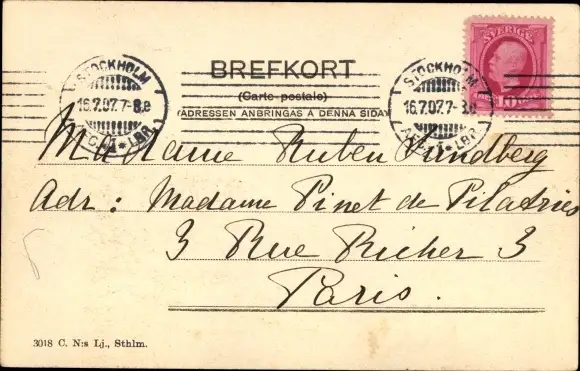 SVERIGE
BREFKORT
(Carte postale)
(ADRESSEN ANBRINGAS Å DENNA SIDA)
STOCKHOLM
16.7.07. 7-8.e
LBR.
STOCKHOLM
16.7.07. 7-8.e
LBR.
Madame Ruben Sundberg
Adr: Madame Pinet de
3 Rue Richer 3
Paris.
3018 C. N:s Lj., Sthlm.